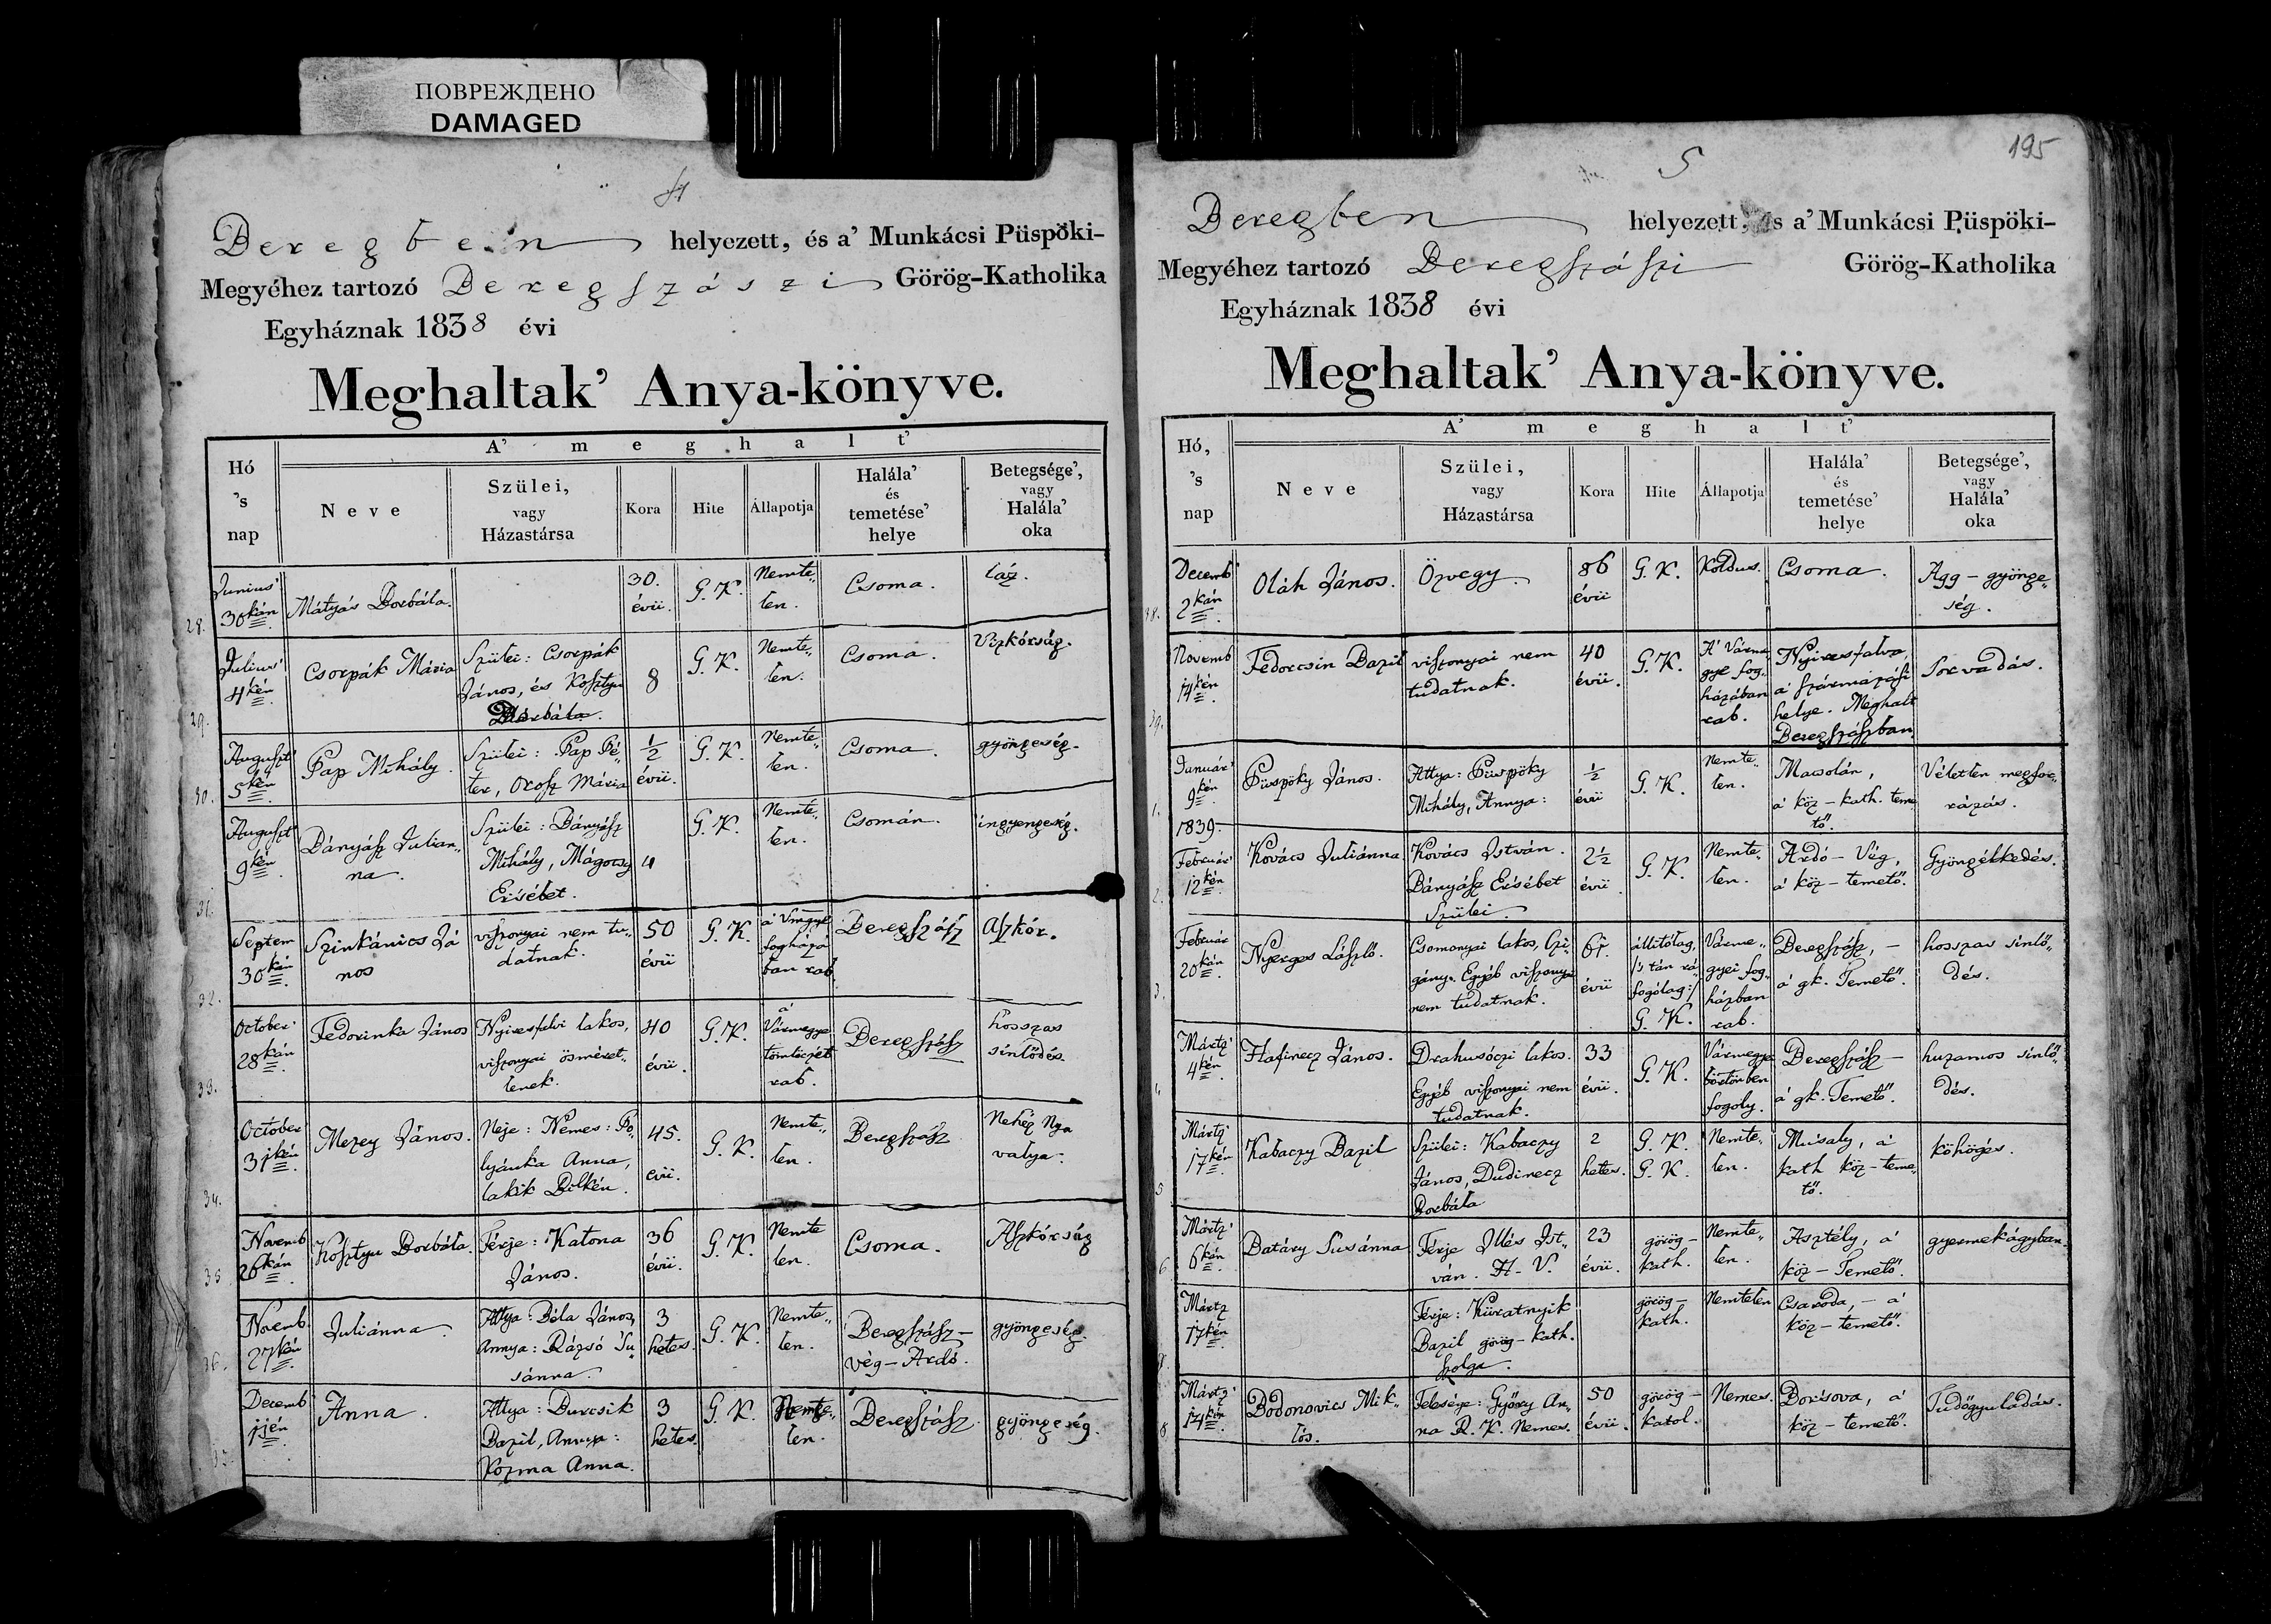 ПОВРЕЖДЕНО
DAMAGED
4
Beregben helyezett, és a' Munkácsi Püspöki-
Megyéhez tartozó Beregszászi Görög-Katholika
Egyháznak 1838 évi
Meghaltak' Anya-könyve.
A' meghalt'
Hó 's nap
Neve
Szülei, vagy Házastársa
Kora
Hite
Állapotja
Halála' és temetése' helye
Betegsége', vagy Halála' oka
28. Junius' 30kán Mátyás Borbála. 30. évü. G. K. Nemte„ len. Csoma. láz.
29. Julius' 4kén Csorpák Mária Szülei: Csorpák János, és Kosztyu Borbála. 8 G. K. Nemte„ len. Csoma. Vizkórság.
30. August' 5kén Pap Mihály. Szülei: Pap Pé„ ter, Orosz Mária ½ évü. G. K. Nemte„ len. Csoma. gyöngeség.
31. August' 9kén Bányász Julian„ na. Szülei: Bányász Mihály, Mágocsy Ersébet. 4 G. K. Nemte„ len. Csomán. ingyengeség.
32. Septem 30kán Szinkánics Já nos viszonyai nem tu„ datnak. 50 évü G. K. a' Vmgye fogházá ban rab. Beregszász Aszkór.
33. October' 28kán Fedorinka János Nyiresfalvi lakos, viszonyai ösméret„ lenek. 40 évü. G. K. a' Vármegye tömlöczét rab. Beregszász hosszas sinlődés.
34. October 31kén Mezey János. Neje: Nemes: Po lyánka Anna, lakik Bilkén. 45. évü. G. K. Nemte„ len. Beregszász Nehéz Nya valya.
35 Novemb 26kán Kosztyu Borbála. Férje: Katona János. 36 évü. G. K. Nemte len. Csoma. Aszkórság
36. Novemb. 27kén Juliánna. Attya: Béla János, Annya: Rázsó Su„ sánna. 3 hetes. G. K. Nemte„ len. Beregszász- vég-Ardó. gyöngeség.
37. Decemb 1jén Anna. Attya: Burcsik Bazil, Annya: Kozma Anna. 3 hetes. G. K. Nemte„ len. Beregszász. gyöngeség.
195
5
Beregben helyezett, és a' Munkácsi Püspöki-
Megyéhez tartozó Beregszászi Görög-Katholika
Egyháznak 1838 évi
Meghaltak' Anya-könyve.
A' meghalt'
Hó, 's nap
Neve
Szülei, vagy Házastársa
Kora
Hite
Állapotja
Halála' és temetése' helye
Betegsége', vagy Halála' oka
38. Decemb' 2kán Oláh János. Özvegy. 86 évü G. K. Koldus. Csoma. Agg-gyönge„ ség.
39. Novemb 14kén Fedorcsin Bazil viszonyai nem tudatnak. 40 évü. G. K. A' Várme gye fog„ házában rab. Nyiresfalva, a' származási helye. Meghalt Beregszászban Sorvadás.
1. Január' 9kén 1839. Püspöky János. Attya: Püspöky Mihály, Annya: ½ évü G. K. Nemte„ len. Macsolán, a' köz-kath. teme tő. Véletlen megfor„ rázás.
2. Február' 12kén Kovács Juliánna. Kovács István. Bányász Ersébet Szülei. 2½ évü G. K. Nemte„ len. Ardó-Vég, a' köz-temető. Gyöngélkedés.
3. Február 20kán Nyerges László. Csomonyai lakos, Czi„ gány. Egyéb viszonyai nem tudatnak. 67. évü állitólag, /:s tán rá„ fogólag:/ G. K. Várme„ gyei fog„ házban rab. Beregszász, - a' gk. Temető. hosszas sinlő„ dés.
4. Mártz' 4kén Hafinecz János. Drahusóczi lakos. Egyéb viszonyai nem tudatnak. 33 évü. G. K. Vármegye börtönben fogoly. Beregszász- a' gk. Temető. huzamos sinlő„ dés.
5 Mártz' 17kén Kabaczy Bazil Szülei: Kabaczy János, Dudinecz Borbála 2 hetes. G. K. G. K. Nemte„ len. Musaly, a' kath köz-teme„ tő. köhögés.
6. Mártz' 6kán Batáry Susánna Férje Illés Ist„ ván. H. V. 23 évü. görög- kath. Nemte„ len. Asztély, a' köz-Temető. gyermekágyban.
7. Mártz 17kén Férje: Küratnyik Bazil görög-kath. szolga. görög- kath. Nemtelen Csaroda,- a' köz-temető.
8. Mártz' 14kén Bodonovics Mik„ lós. Felesége: Győry An„ na R. K. Nemes. 50 évü. görög- katol. Nemes. Borsova, a' köz-temető. Tüdőgyuladás.